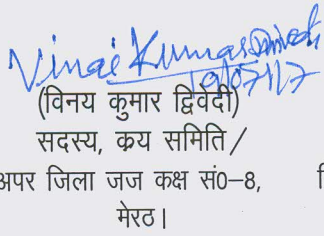 Vinai Kumar Dwivedi
19/07/17
(विनय कुमार द्विवेदी)
सदस्य, क्रय समिति /
अपर जिला जज कक्ष सं0-8,
मेरठ।